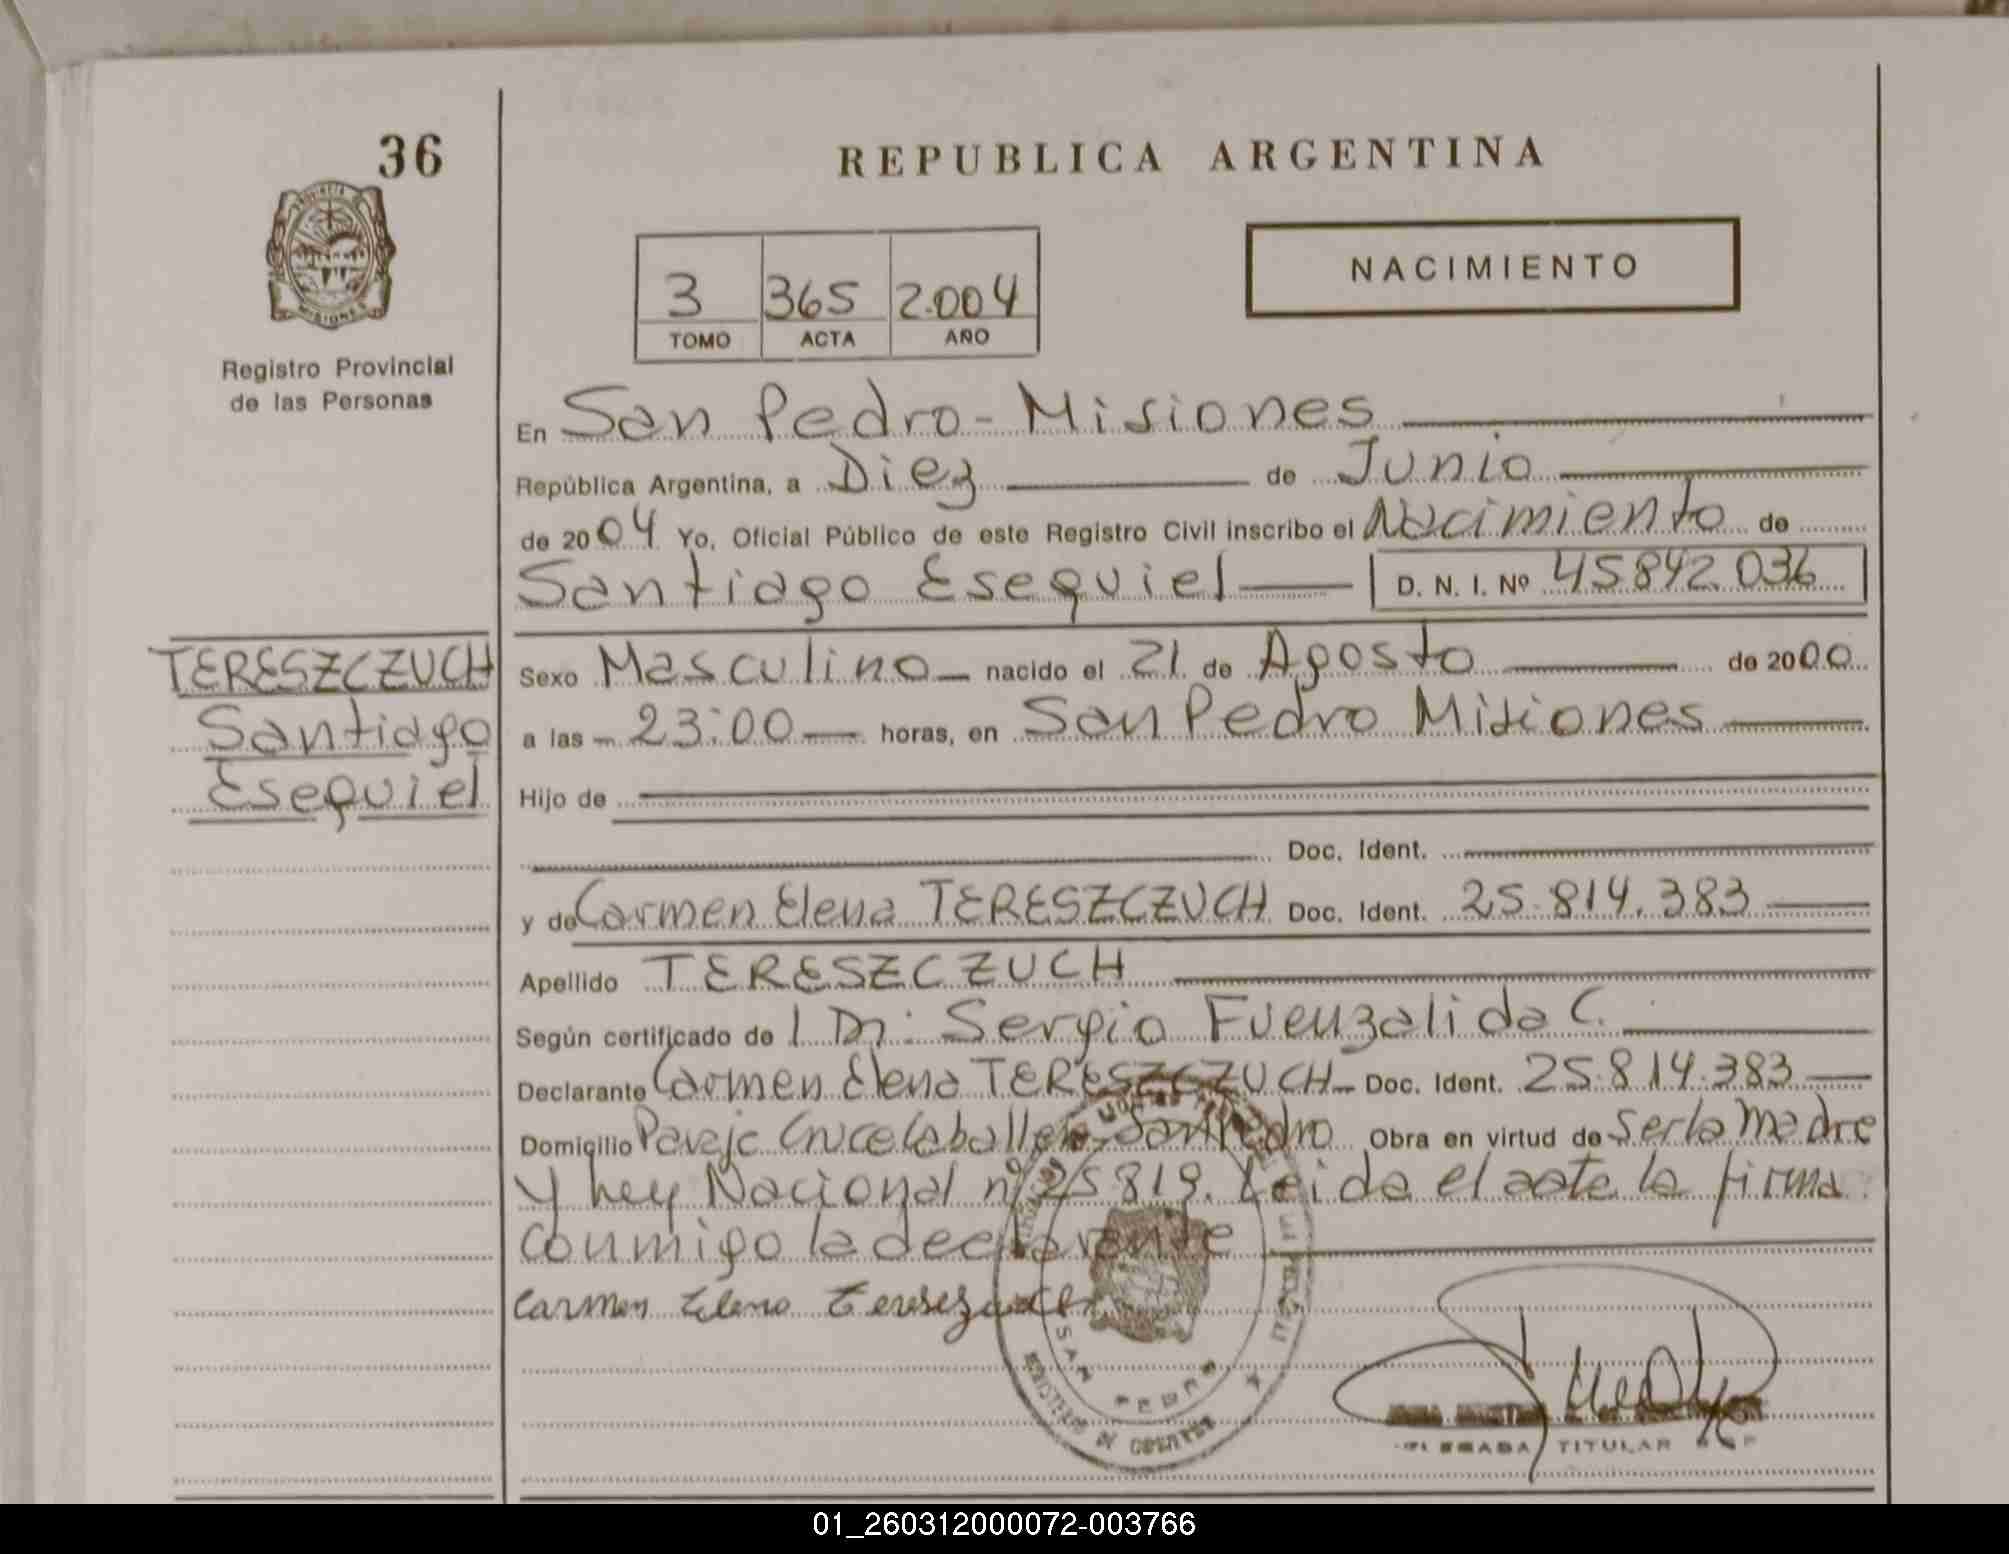 36
REPUBLICA ARGENTINA
3 365 2.004
TOMO ACTA AÑO
NACIMIENTO
MISIONES
Registro Provincial
de las Personas
En San Pedro - Misiones
República Argentina, a Diez de Junio
de 2004 Yo, Oficial Público de este Registro Civil inscribo el Nacimiento de
Santiago Esequiel D. N. I. Nº 45.842.036
TERESZCZUCH
Santiago
Esequiel
Sexo Masculino nacido el 21 de Agosto de 2000
a las 23:00 horas, en San Pedro Misiones
Hijo de
Doc. Ident.
y de Carmen Elena TERESZCZUCH Doc. Ident. 25.814.383
Apellido TERESZCZUCH
Según certificado de Dr: Sergio Fuenzalida C.
Declarante Carmen Elena TERESZCZUCH Doc. Ident. 25.814.383
Domicilio Paraje Cruce Caballero San Pedro Obra en virtud de Ser la Madre
y ley Nacional nº 25819. Leida el acta la firma
conmigo la declarante
Carmen Elena
SAN PEDRO
MINISTERIO DE GOBIERNO
TITULAR
01_260312000072-003766